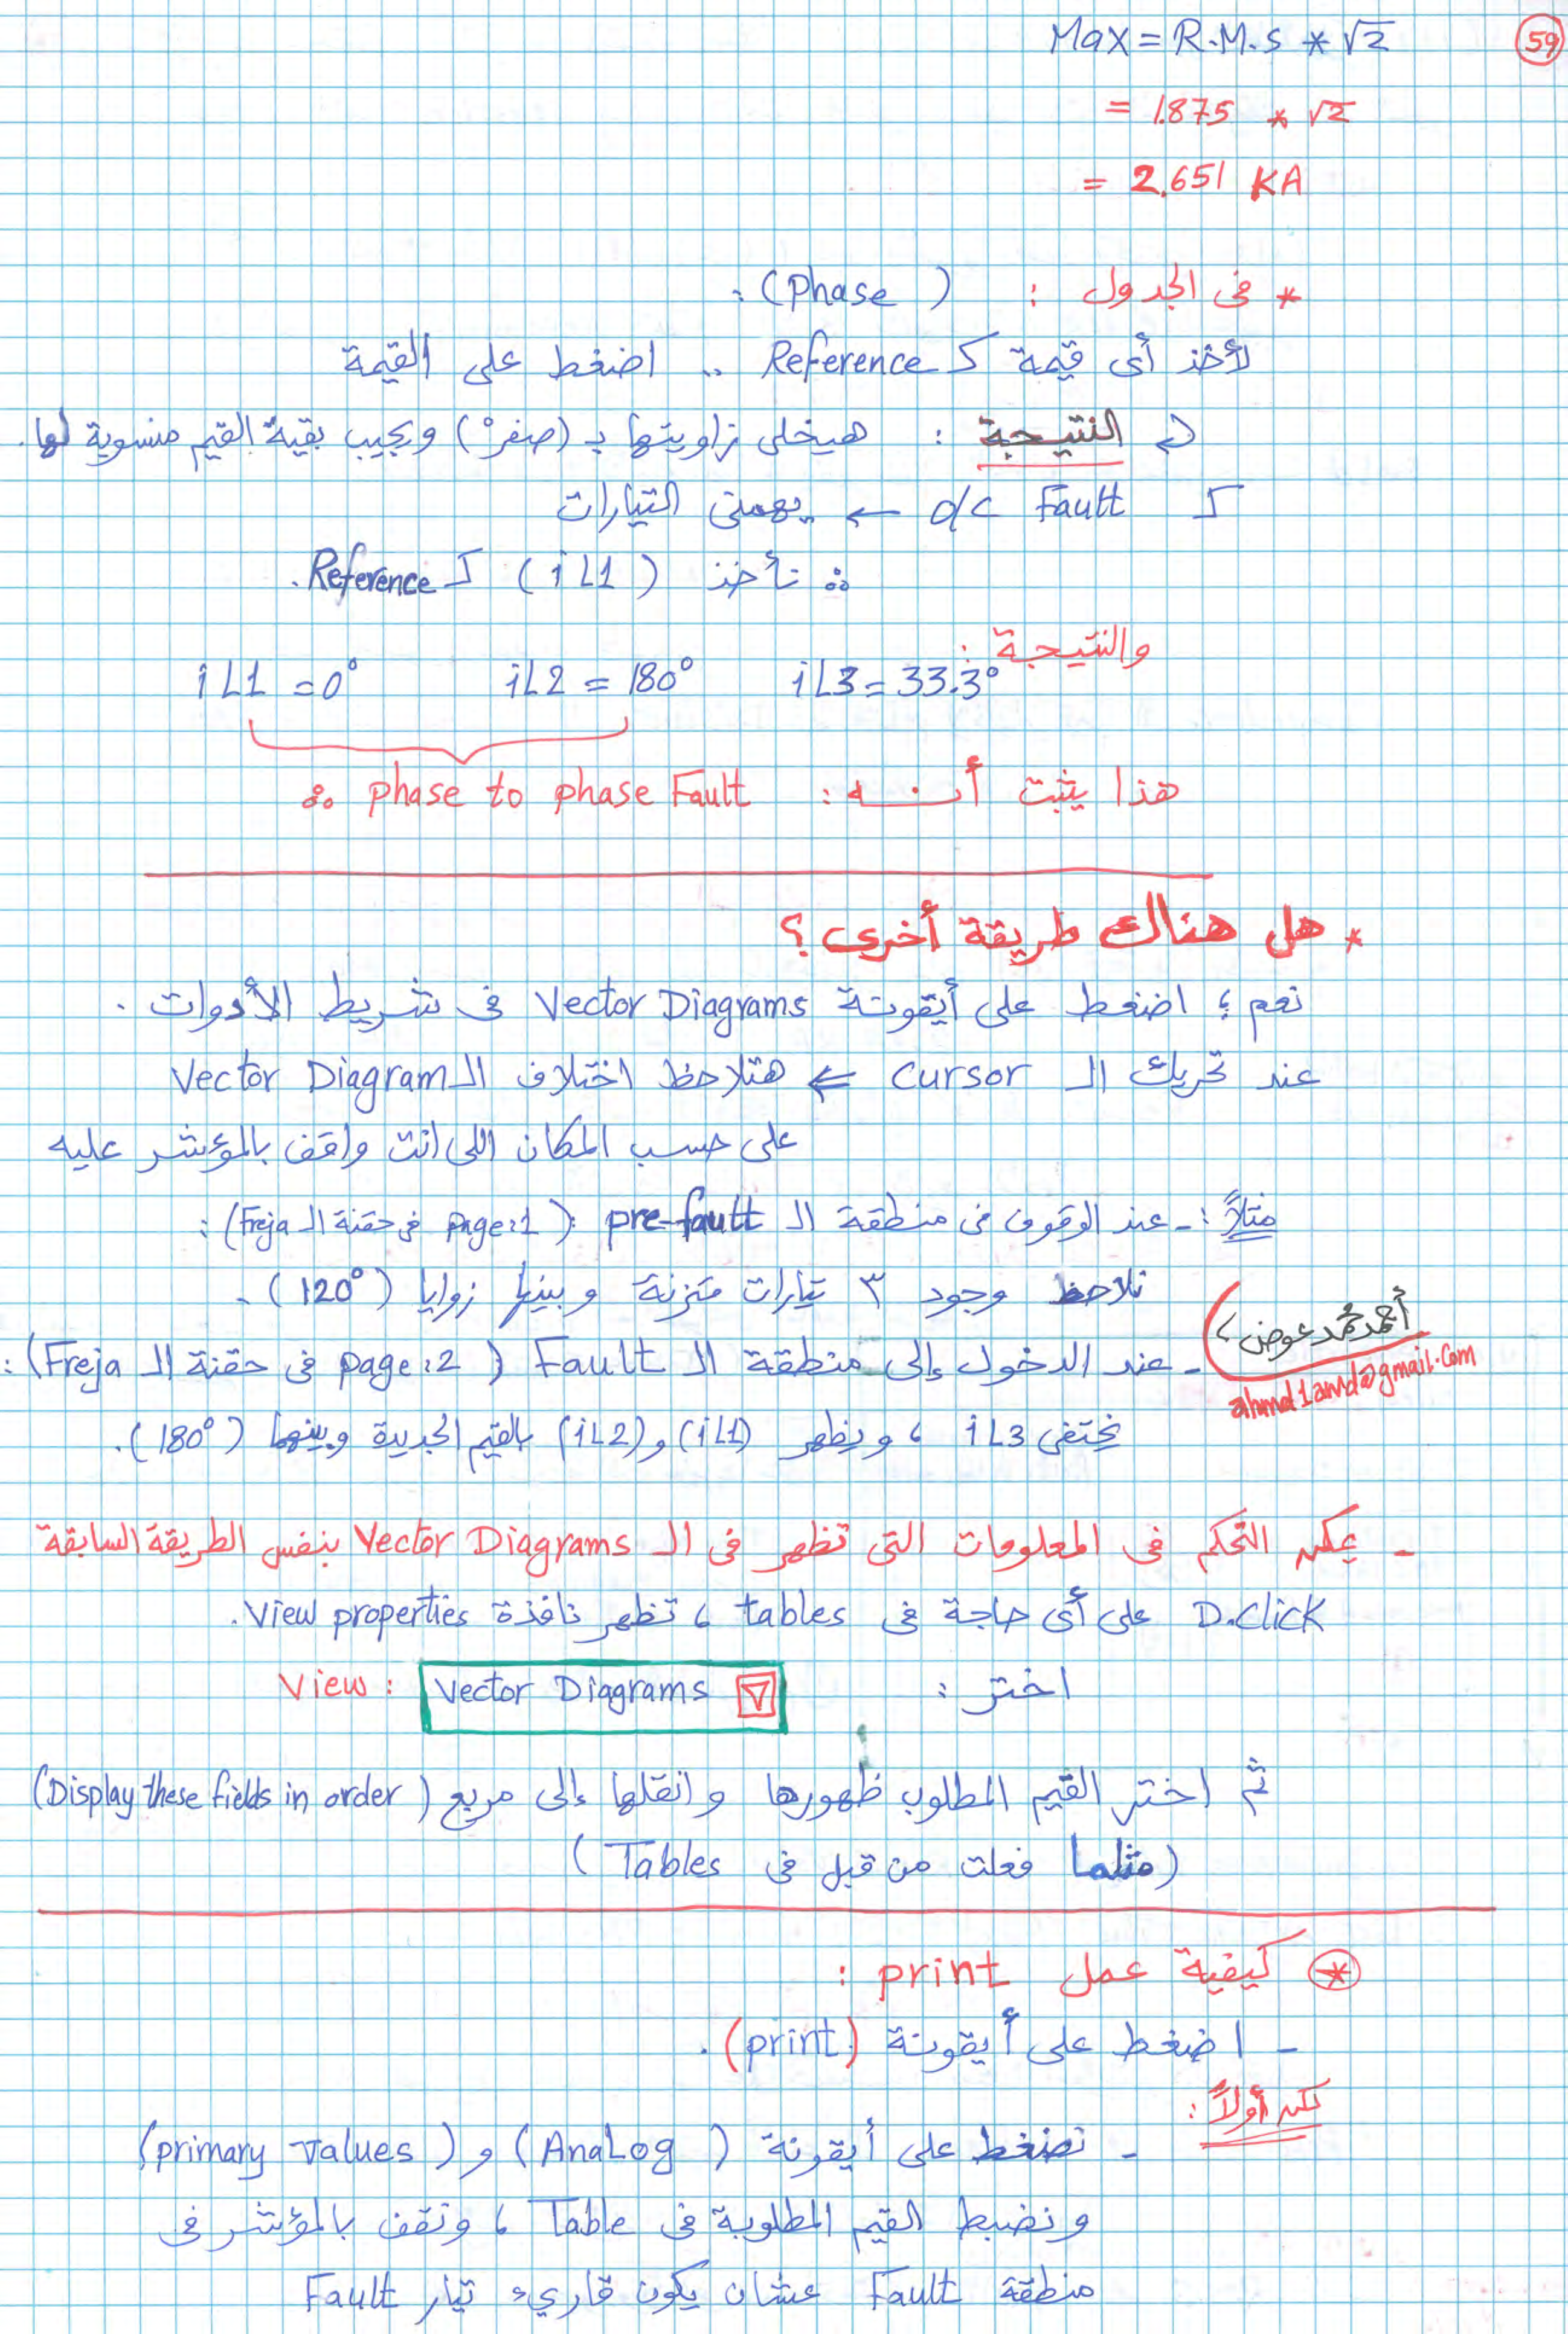 59
Max = R.M.S * √2
= 1.875 * √2
= 2.651 KA
* فى الجدول : (Phase) :
لأخذ أى قيمة كـ Reference .. اضغط على القيمة
النتيجة : هيخلى زاويتها بـ (صفر°) ويجيب بقية القيم منسوبة لها.
كـ o/c Fault ← يهمنى التيارات
∴ نأخذ (iL1) كـ Reference.
والنتيجة :
iL1 = 0° iL2 = 180° iL3 = 33.3°
هذا يثبت أنه : ∴ phase to phase Fault
* هل هناك طريقة أخرى ؟
نعم ؛ اضغط على أيقونة Vector Diagrams فى شريط الأدوات .
عند تحريك الـ cursor ⇐ هتلاحظ اختلاف الـ Vector Diagram
على حسب المكان اللى انت واقف بالمؤشر عليه
مثلاً : - عند الوقوف فى منطقة الـ pre-fault (page:1 فى حقنة الـ Freja) :
نلاحظ وجود ٣ تيارات متزنة وبينها زوايا (120°) .
أحمد محمد عوض
ahmd1amd@gmail.com
- عند الدخول إلى منطقة الـ Fault (page:2 فى حقنة الـ Freja) :
يختفى iL3 ، ويظهر (iL1) و (iL2) بالقيم الجديدة وبينهما (180°).
- يمكن التحكم فى المعلومات التى تظهر فى الـ Vector Diagrams بنفس الطريقة السابقة
D.Click على أى حاجة فى tables ، تظهر نافذة View properties.
اختر : View : Vector Diagrams ▽
ثم اختر القيم المطلوب ظهورها وانقلها إلى مربع (Display these fields in order)
(مثلما فعلت من قبل فى Tables)
* كيفية عمل print :
- اضغط على أيقونة (print) .
لكن أولاً :
- نضغط على أيقونة (AnaLog) و (primary values)
ونضبط القيم المطلوبة فى Table ، ونقف بالمؤشر فى
منطقة Fault عشان يكون قاريء تيار Fault